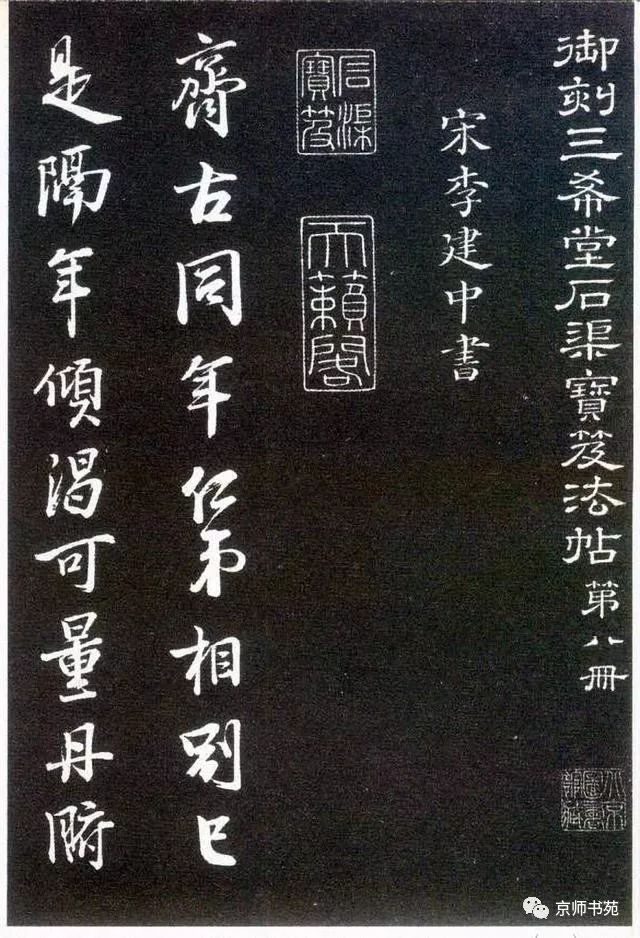 御刻三希堂石渠寶笈法帖第八冊
宋李建中書
石渠寶笈
天籟閣
齊古同年仁弟相別已
是隔年傾渴可量丹腑
京师书苑